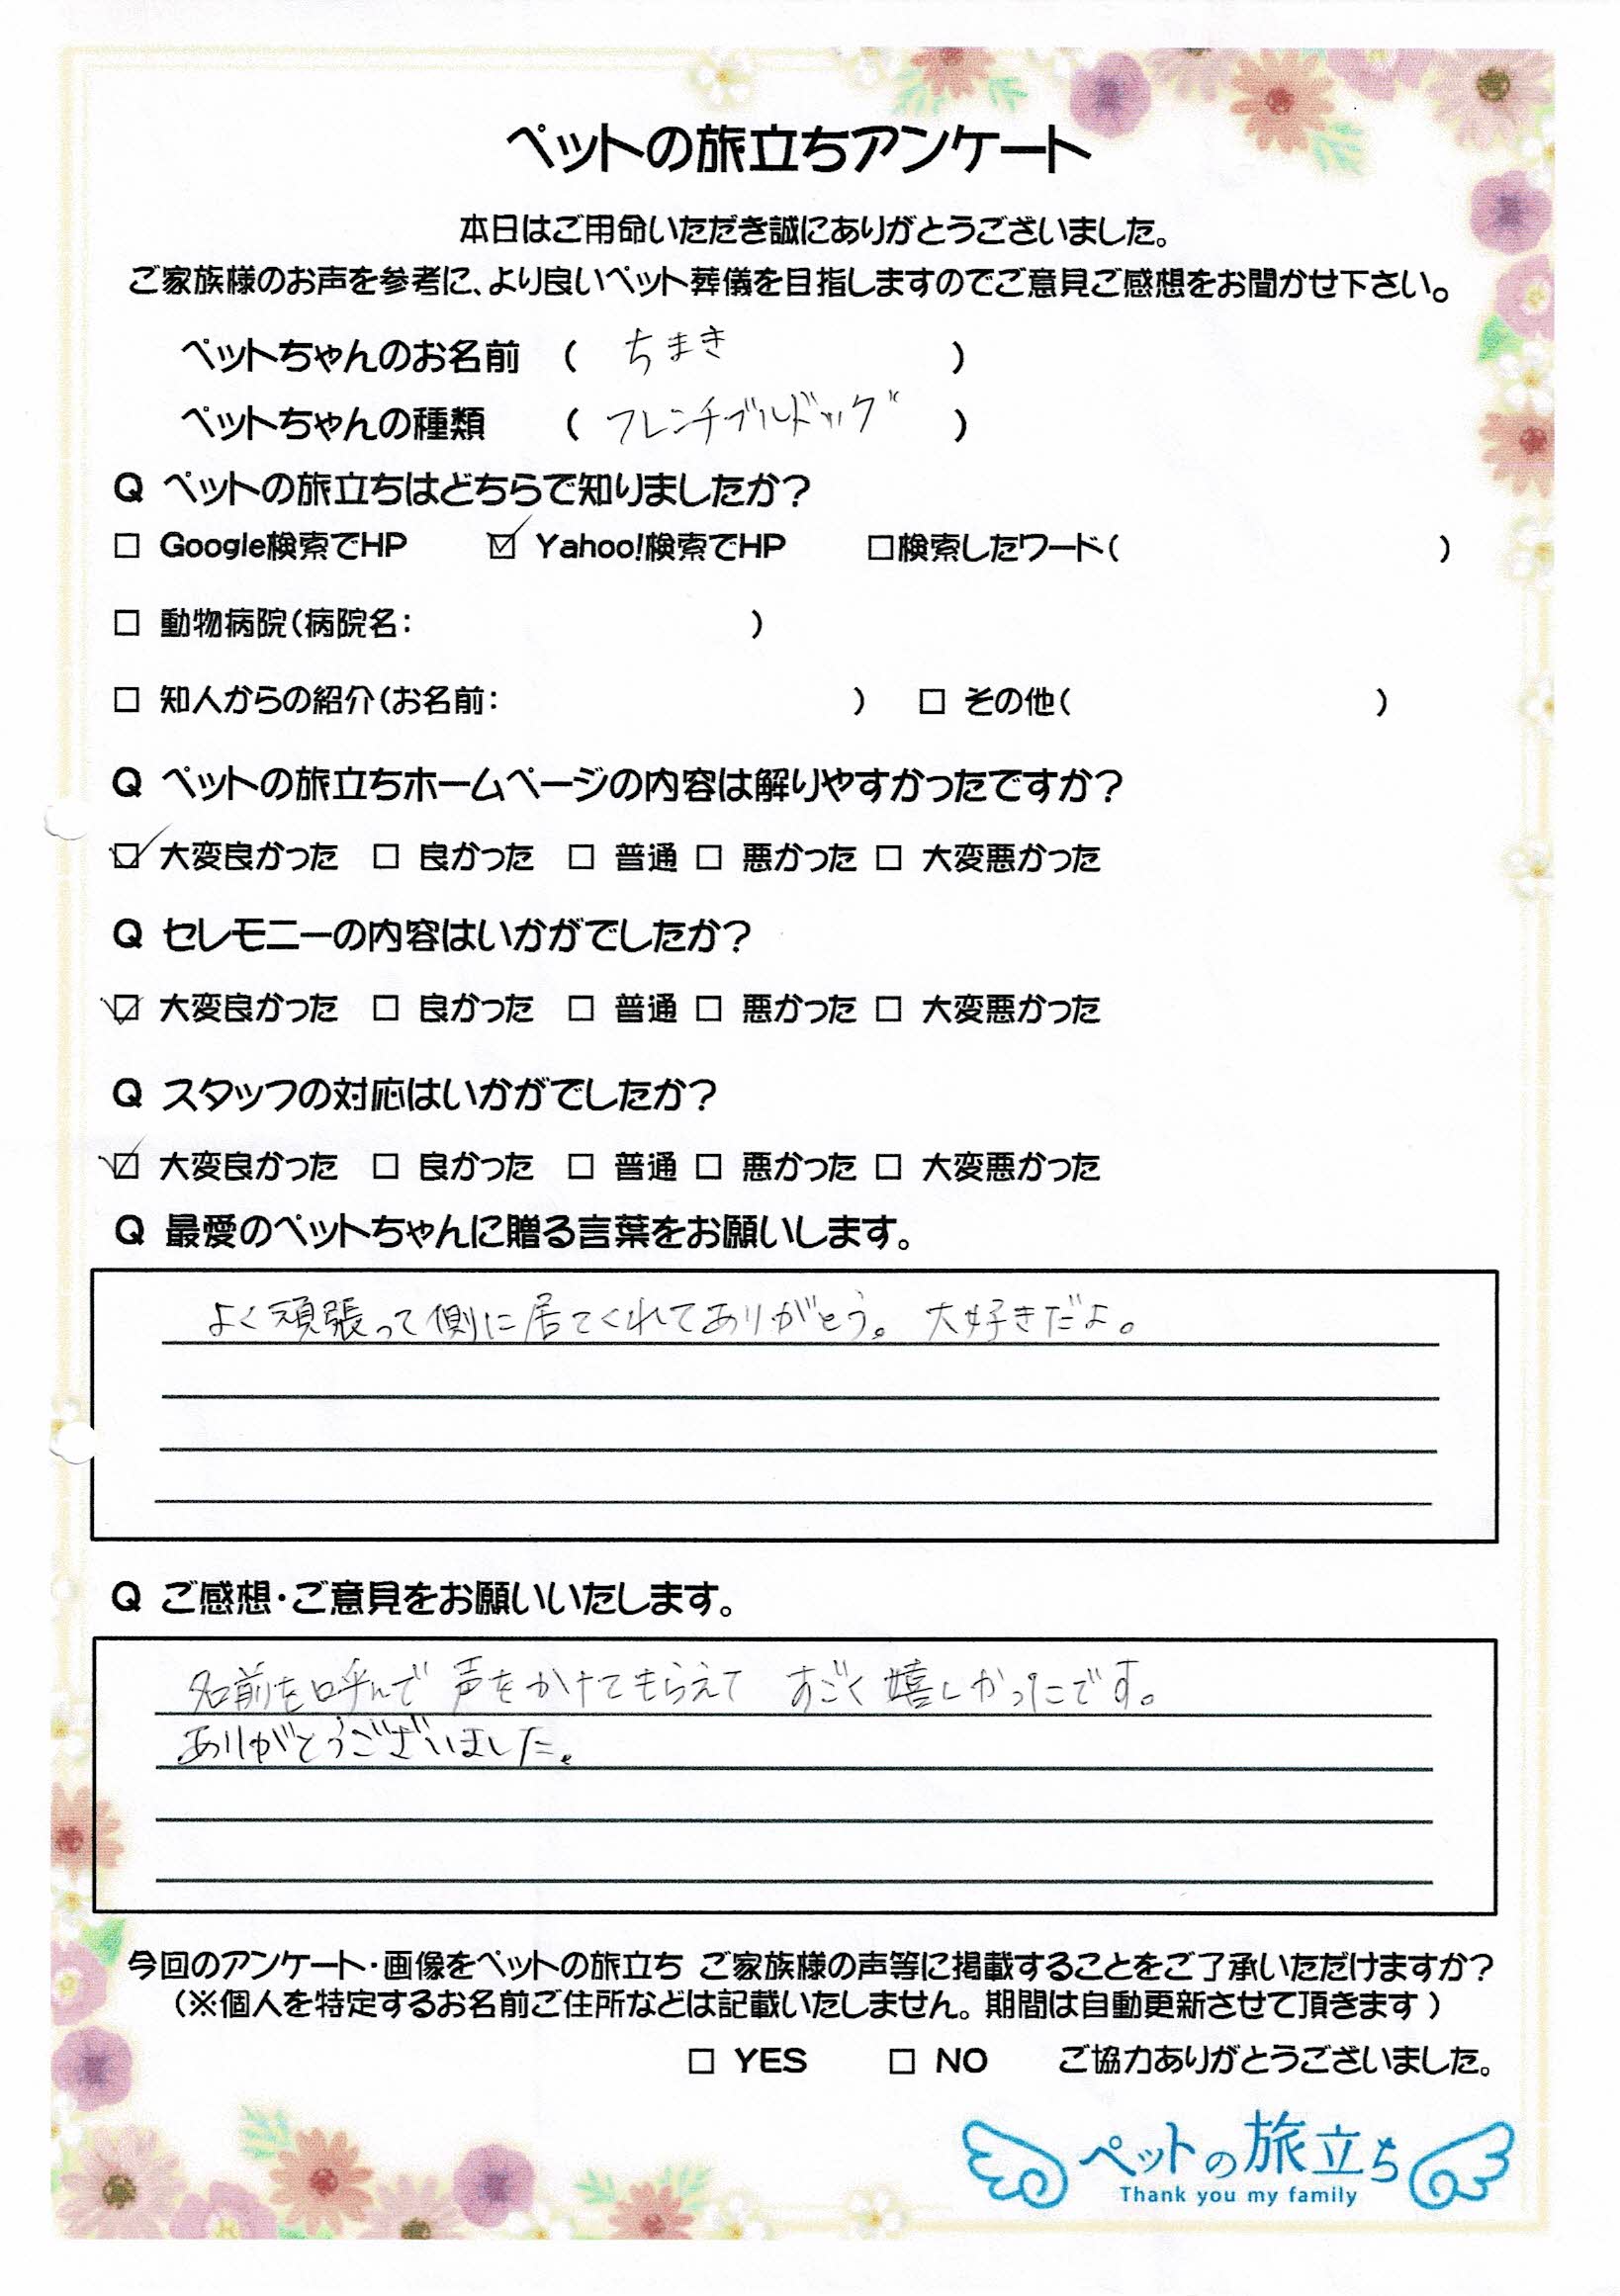 ペットの旅立ちアンケート
本日はご用命いただき誠にありがとうございました。
ご家族様のお声を参考に、より良いペット葬儀を目指しますのでご意見ご感想をお聞かせ下さい。
ペットちゃんのお名前 ( ちまき )
ペットちゃんの種類 ( フレンチブルドッグ )
Q ペットの旅立ちはどちらで知りましたか?
□ Google検索でHP ☑ Yahoo!検索でHP □検索したワード( )
□ 動物病院(病院名: )
□ 知人からの紹介(お名前: ) □ その他( )
Q ペットの旅立ちホームページの内容は解りやすかったですか?
☑ 大変良かった □ 良かった □ 普通 □ 悪かった □ 大変悪かった
Q セレモニーの内容はいかがでしたか?
☑ 大変良かった □ 良かった □ 普通 □ 悪かった □ 大変悪かった
Q スタッフの対応はいかがでしたか?
☑ 大変良かった □ 良かった □ 普通 □ 悪かった □ 大変悪かった
Q 最愛のペットちゃんに贈る言葉をお願いします。
よく頑張って側に居てくれてありがとう。 大好きだよ。
Q ご感想・ご意見をお願いいたします。
名前を呼んで 声をかけてもらえて すごく嬉しかったです。
ありがとうございました。
今回のアンケート・画像をペットの旅立ち ご家族様の声等に掲載することをご了承いただけますか?
(※個人を特定するお名前ご住所などは記載いたしません。期間は自動更新させて頂きます)
□ YES □ NO ご協力ありがとうございました。
ペットの旅立ち
Thank you my family